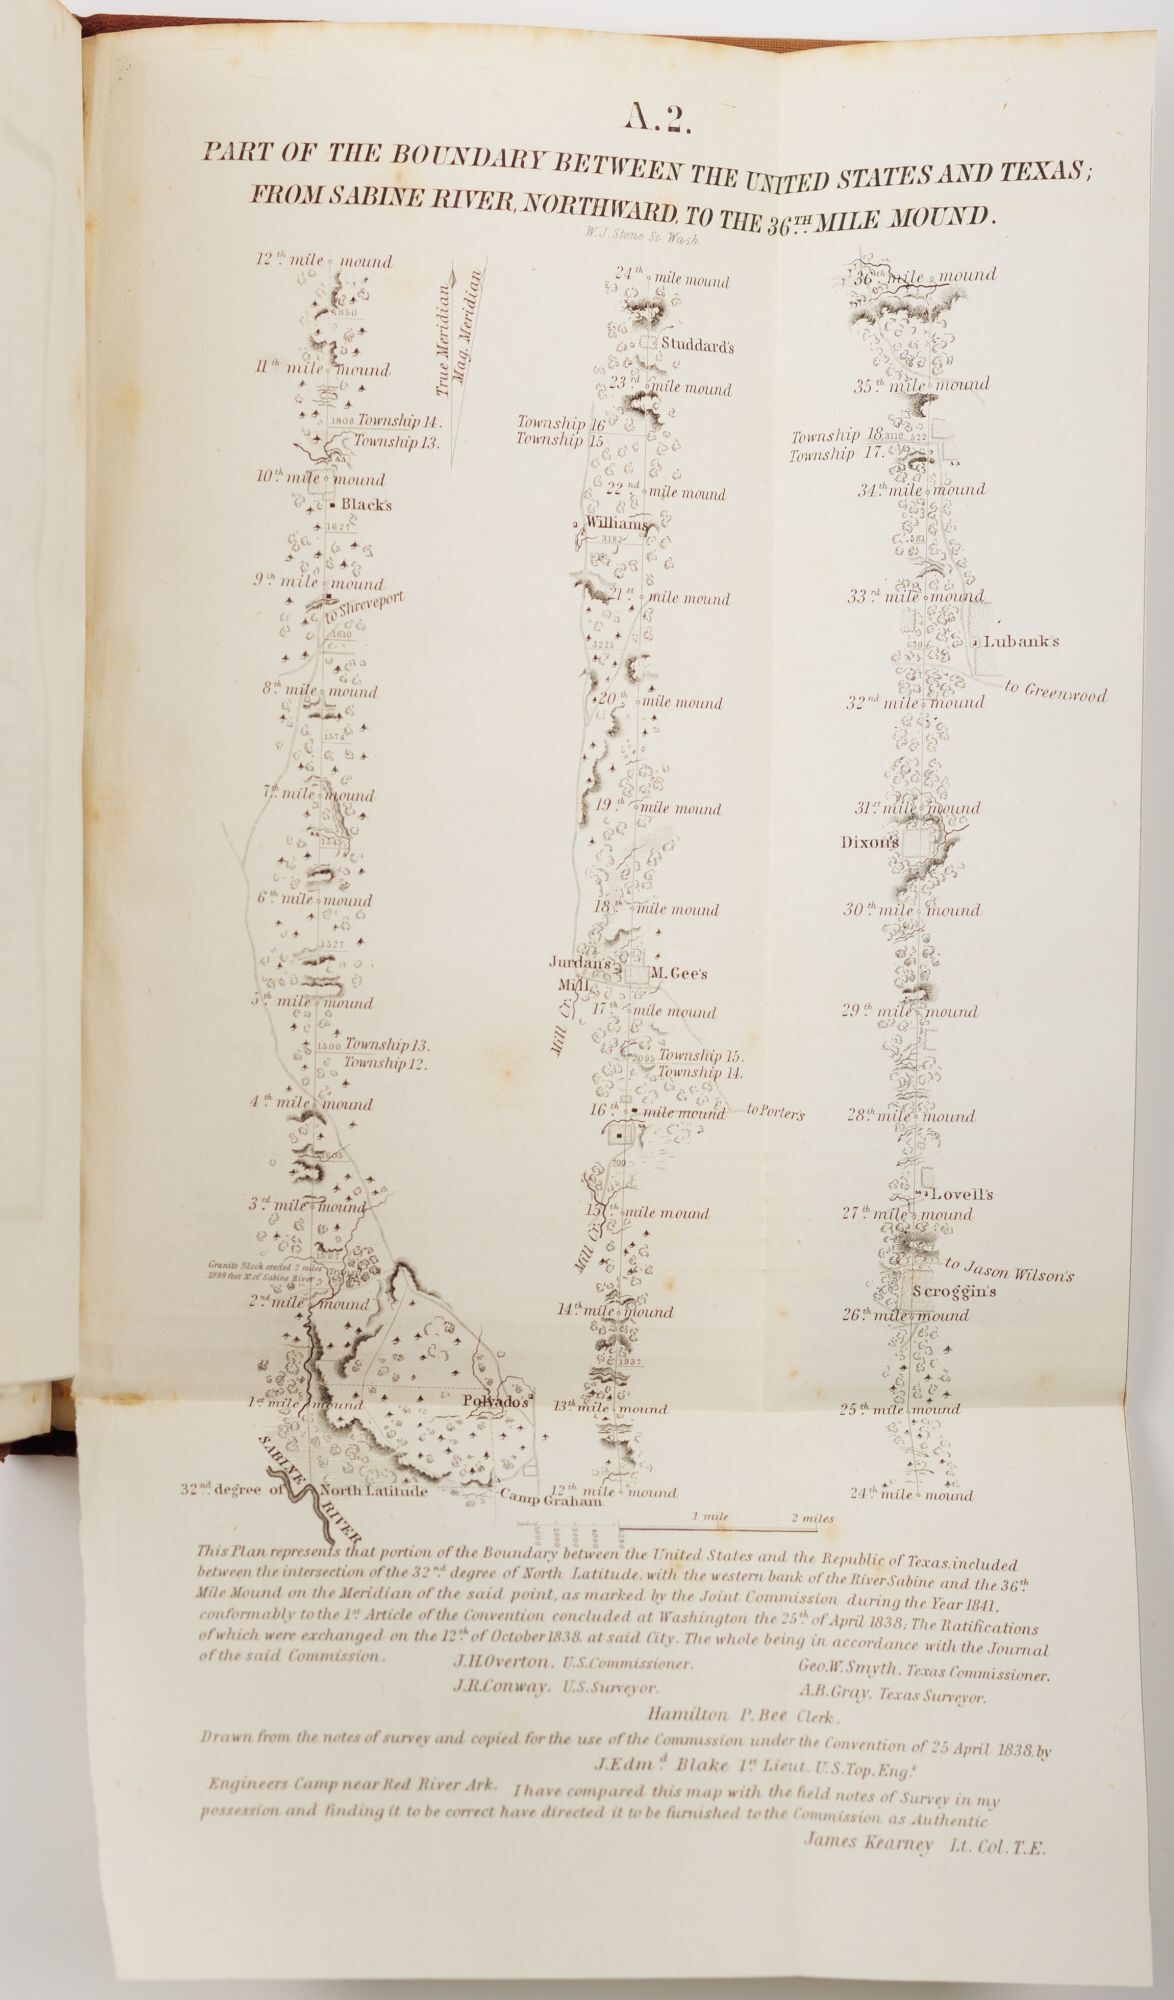 A.2.
PART OF THE BOUNDARY BETWEEN THE UNITED STATES AND TEXAS;
FROM SABINE RIVER, NORTHWARD, TO THE 36TH MILE MOUND.
W.J. Stone Sc Wash.
12th mile mound
1850
11th mile mound
True Meridian
Mag. Meridian
1808 Township 14.
Township 13.
10th mile mound
Black's
1627
9th mile mound
to Shreveport
1610
8th mile mound
1574
7th mile mound
6th mile mound
1527
5th mile mound
1500 Township 13.
Township 12.
4th mile mound
3rd mile mound
Granite Block erected 2 miles
1998 feet N. of Sabine River
2nd mile mound
1st mile mound
Polvado's
SABINE RIVER
32nd degree of North Latitude
Camp Graham
24th mile mound
Studdard's
23rd mile mound
Township 16
Township 15
22nd mile mound
Williams
3182
21st mile mound
3225
20th mile mound
19th mile mound
18th mile mound
Jurdan's
Mill
M. Gee's
Mill Cr.
17th mile mound
2095 Township 15.
Township 14.
16th mile mound
to Porter's
700
15th mile mound
Mill Cr.
14th mile mound
1937
13th mile mound
12th mile mound
36th mile mound
35th mile mound
Township 18. 522
Township 17.
34th mile mound
33rd mile mound
Lubank's
to Greenwood
32nd mile mound
31st mile mound
Dixon's
30th mile mound
29th mile mound
28th mile mound
Lovell's
27th mile mound
to Jason Wilson's
Scroggin's
26th mile mound
25th mile mound
24th mile mound
1 mile 2 miles
This Plan represents that portion of the Boundary between the United States and the Republic of Texas, included
between the intersection of the 32nd degree of North Latitude, with the western bank of the River Sabine and the 36th
Mile Mound on the Meridian of the said point, as marked by the Joint Commission during the Year 1841,
conformably to the 1st Article of the Convention concluded at Washington the 25th of April 1838; The Ratifications
of which were exchanged on the 12th of October 1838, at said City. The whole being in accordance with the Journal
of the said Commission.
J.H. Overton, U.S. Commissioner.
Geo. W. Smyth, Texas Commissioner.
J.R. Conway, U.S. Surveyor.
A.B. Gray, Texas Surveyor.
Hamilton P. Bee Clerk.
Drawn from the notes of survey and copied for the use of the Commission under the Convention of 25 April 1838, by
J. Edmd Blake 1st Lieut. U.S. Top. Engs
Engineers Camp near Red River Ark. I have compared this map with the field notes of Survey in my
possession and finding it to be correct have directed it to be furnished to the Commission as Authentic
James Kearney Lt. Col. T.E.